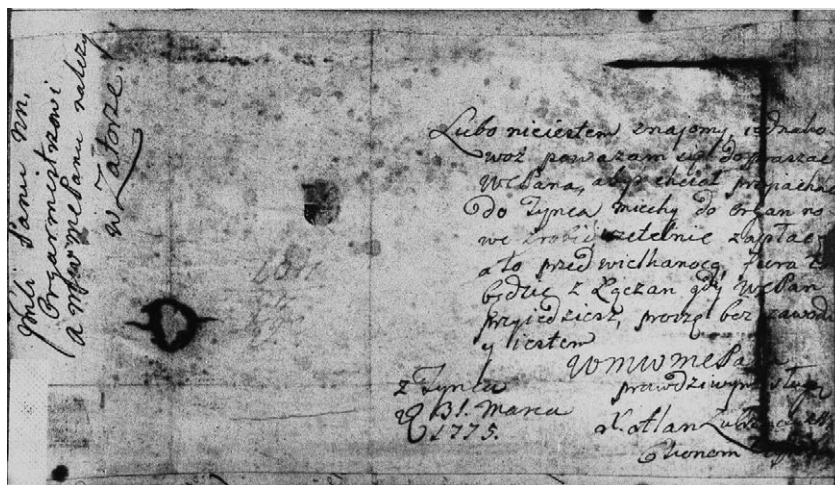 Jmći Panu nn.
Organmistrzowi
a mwmePanu należy
w Zatorze.
Lubo nieiestem znajomy, iednako
woż powazam się dopraszac
WcPana, abyś chciał przyiacha
do Tynca miechy do organ no
we zrobić rzetelnie zapłac
a to przed wielkanocą, fura t
będzie z Łączan gdy WcPan
przyiedziesz, proszę bez zawodu
y iestem
WmwmePana
z Tynca prawdziwym sługą
D 31. Marca
1775.